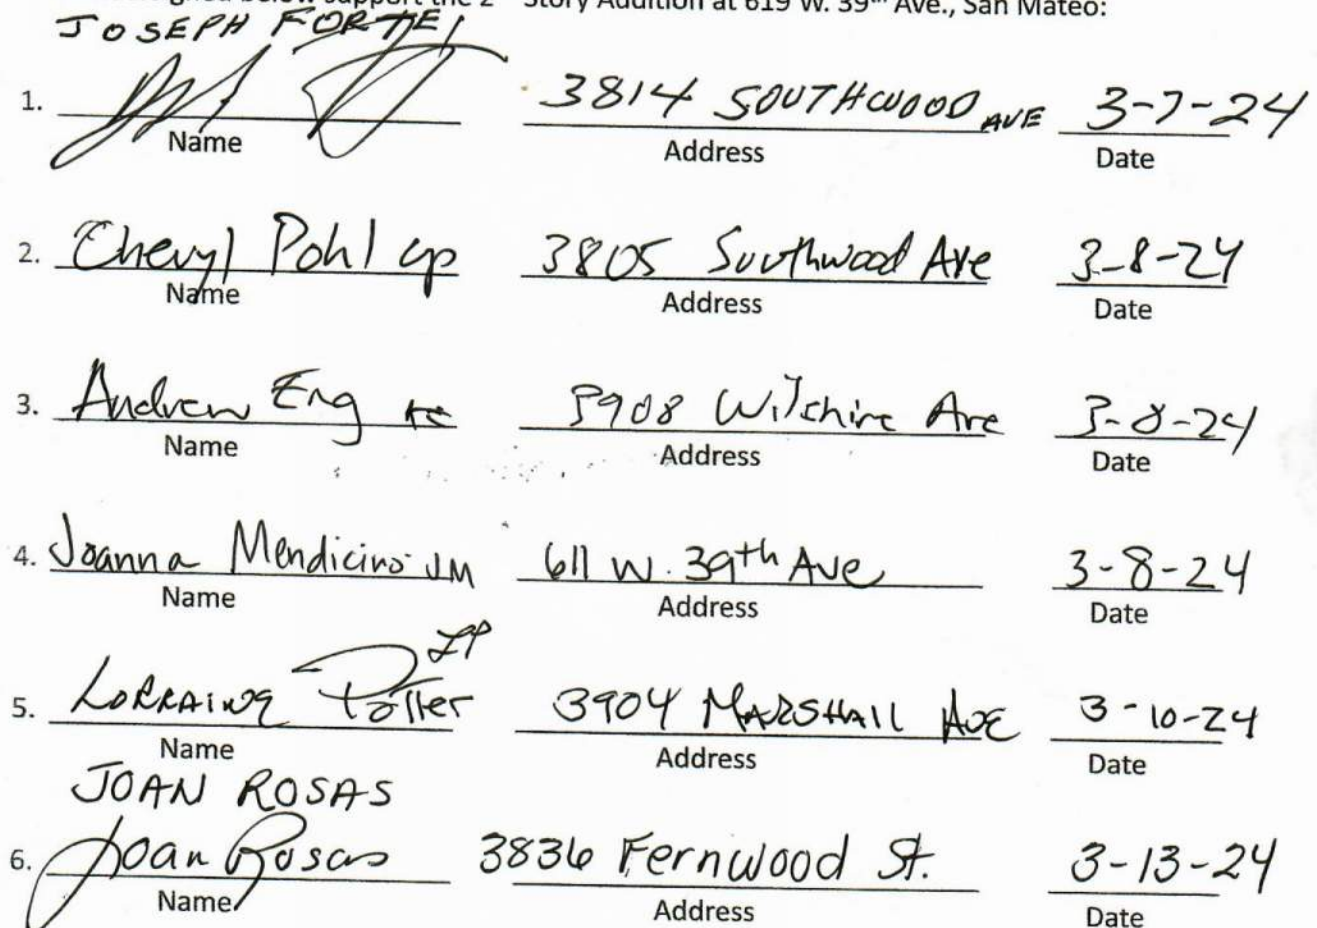 signed below support the 2 Story Addition at 619 W. 39th Ave., San Mateo:
JOSEPH FORTE
1. 3814 SOUTHWOOD AVE 3-7-24
Name Address Date
2. Cheryl Pohl cp 3805 Southwood Ave 3-8-24
Name Address Date
3. Andrew Eng 3908 Wilshire Ave 3-8-24
Name Address Date
4. Joanna Mendicino JM 611 W. 39th Ave 3-8-24
Name Address Date
LP
5. LORRAINE Potter 3904 MARSHALL AVE 3-10-24
Name Address Date
JOAN ROSAS
6. Joan Rosas 3836 Fernwood St. 3-13-24
Name Address Date